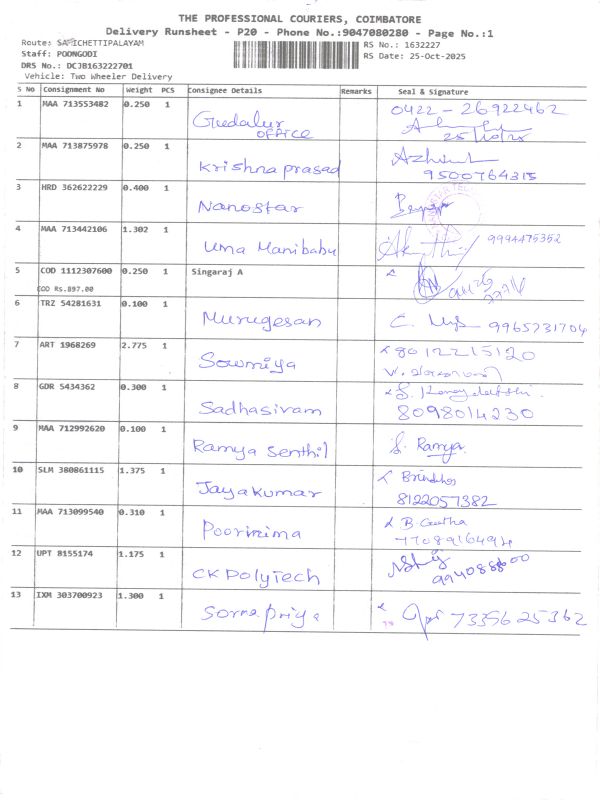 THE PROFESSIONAL COURIERS, COIMBATORE
Delivery Runsheet - P20 - Phone No.:9047080280 - Page No.:1
Route: SATHICHETTIPALAYAM
RS No.: 1632227
Staff: POONGODI
RS Date: 25-Oct-2025
DRS No.: DCJB163222701
Vehicle: Two Wheeler Delivery
S No Consignment No Weight PCS Consignee Details Remarks Seal & Signature
1 MAA 713553482 0.250 1 Gudalur office 0422 - 26922462
25/10/25
2 MAA 713875978 0.250 1 Krishna prasad
9500764315
3 HRD 362622229 0.400 1 Nanostar
4 MAA 713442106 1.302 1 Uma Manibabu 9994475352
5 COD 1112307600 0.250 1 Singaraj A
COD Rs.897.00
6 TRZ 54281631 0.100 1 Murugesan 9965731704
7 ART 1968269 2.775 1 Sowmiya 8012215120
8 GDR 5434362 0.300 1 Sadhasivam
8098014230
9 MAA 712992620 0.100 1 Ramya Senthil S. Ramya
10 SLM 380861115 1.375 1 Jayakumar
8122057382
11 MAA 713099540 0.310 1 Poornima B. Geetha
7708916494
12 UPT 8155174 1.175 1 CK Polytech
13 IXM 303700923 1.300 1 Sornapriya 7339625362